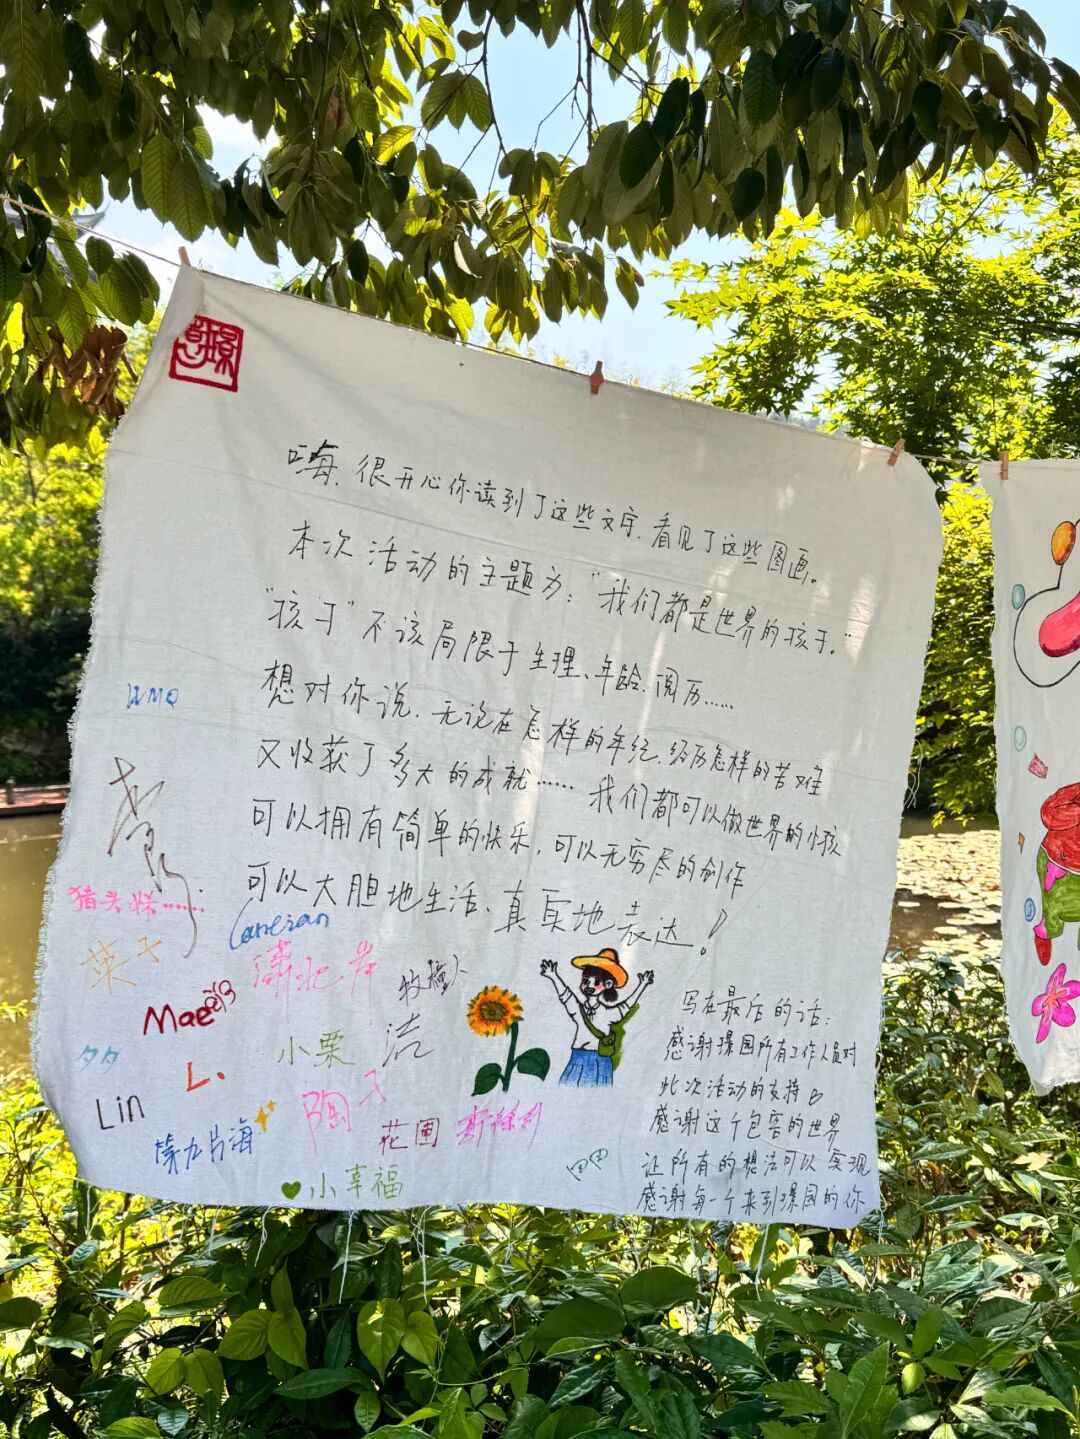 嗨，很开心你读到了这些文字，看见了这些图画。
本次活动的主题为："我们都是世界的孩子。"
"孩子"不该局限于生理、年龄、阅历……
想对你说，无论在怎样的年纪，经历怎样的苦难
又收获了多大的成就…… 我们都可以做世界的小孩
可以拥有简单的快乐，可以无穷尽的创作
可以大胆地生活、真实地表达！
猪头
栗子
Mae
小栗
洁
夕夕
L.
Lin
陶子
花圃
第九片海
小幸福
田田
写在最后的话：
感谢璟园所有工作人员对
此次活动的支持
感谢这个包容的世界
让所有的想法可以实现
感谢每一个来到璟园的你